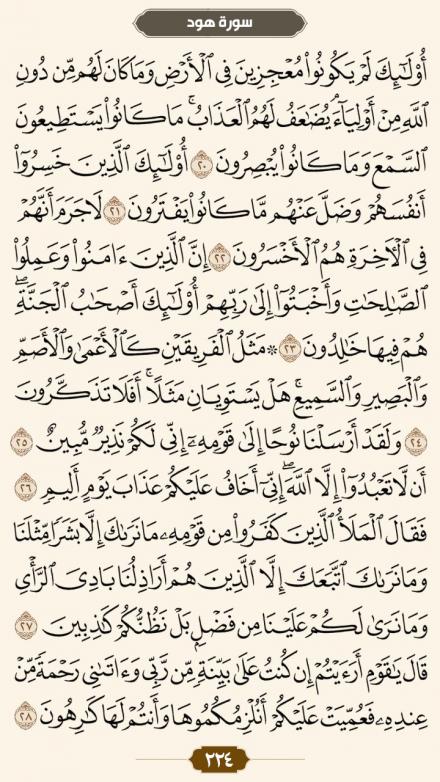 سورة هود
أُوْلَـٰٓئِكَ لَمْ يَكُونُوا۟ مُعْجِزِينَ فِى ٱلْأَرْضِ وَمَا كَانَ لَهُم مِّن دُونِ
ٱللَّهِ مِنْ أَوْلِيَآءَ ۘ يُضَـٰعَفُ لَهُمُ ٱلْعَذَابُ ۚ مَا كَانُوا۟ يَسْتَطِيعُونَ
ٱلسَّمْعَ وَمَا كَانُوا۟ يُبْصِرُونَ ٢٠ أُوْلَـٰٓئِكَ ٱلَّذِينَ خَسِرُوٓا۟
أَنفُسَهُمْ وَضَلَّ عَنْهُم مَّا كَانُوا۟ يَفْتَرُونَ ٢١ لَا جَرَمَ أَنَّهُمْ
فِى ٱلْـَٔاخِرَةِ هُمُ ٱلْأَخْسَرُونَ ٢٢ إِنَّ ٱلَّذِينَ ءَامَنُوا۟ وَعَمِلُوا۟
ٱلصَّـٰلِحَـٰتِ وَأَخْبَتُوٓا۟ إِلَىٰ رَبِّهِمْ أُوْلَـٰٓئِكَ أَصْحَـٰبُ ٱلْجَنَّةِ ۖ
هُمْ فِيهَا خَـٰلِدُونَ ٢٣ ۞ مَثَلُ ٱلْفَرِيقَيْنِ كَٱلْأَعْمَىٰ وَٱلْأَصَمِّ
وَٱلْبَصِيرِ وَٱلسَّمِيعِ ۚ هَلْ يَسْتَوِيَانِ مَثَلًا ۚ أَفَلَا تَذَكَّرُونَ
٢٤ وَلَقَدْ أَرْسَلْنَا نُوحًا إِلَىٰ قَوْمِهِۦٓ إِنِّى لَكُمْ نَذِيرٌ مُّبِينٌ ٢٥
أَن لَّا تَعْبُدُوٓا۟ إِلَّا ٱللَّهَ ۖ إِنِّىٓ أَخَافُ عَلَيْكُمْ عَذَابَ يَوْمٍ أَلِيمٍ ٢٦
فَقَالَ ٱلْمَلَأُ ٱلَّذِينَ كَفَرُوا۟ مِن قَوْمِهِۦ مَا نَرَىٰكَ إِلَّا بَشَرًا مِّثْلَنَا
وَمَا نَرَىٰكَ ٱتَّبَعَكَ إِلَّا ٱلَّذِينَ هُمْ أَرَاذِلُنَا بَادِىَ ٱلرَّأْىِ
وَمَا نَرَىٰ لَكُمْ عَلَيْنَا مِن فَضْلٍۭ بَلْ نَظُنُّكُمْ كَـٰذِبِينَ ٢٧
قَالَ يَـٰقَوْمِ أَرَءَيْتُمْ إِن كُنتُ عَلَىٰ بَيِّنَةٍ مِّن رَّبِّى وَءَاتَىٰنِى رَحْمَةً مِّنْ
عِندِهِۦ فَعُمِّيَتْ عَلَيْكُمْ أَنُلْزِمُكُمُوهَا وَأَنتُمْ لَهَا كَـٰرِهُونَ ٢٨
٢٢٤